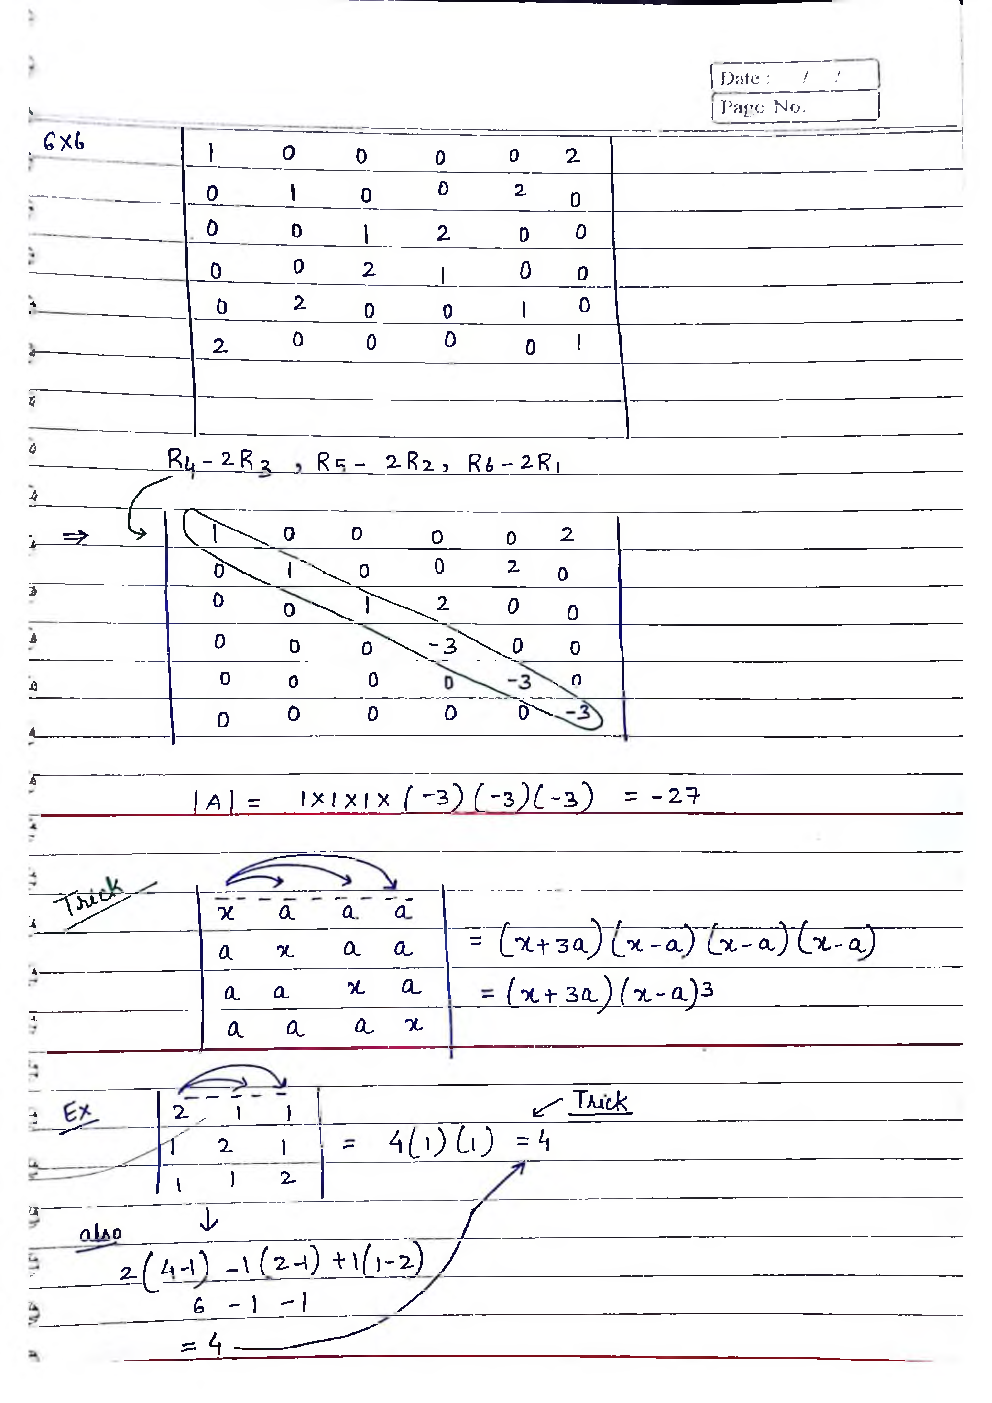 Date : / /
Page No.
6x6
1 0 0 0 0 2
0 1 0 0 2 0
0 0 1 2 0 0
0 0 2 1 0 0
0 2 0 0 1 0
2 0 0 0 0 1
R4-2R3, R5-2R2, R6-2R1
⇒
1 0 0 0 0 2
0 1 0 0 2 0
0 0 1 2 0 0
0 0 0 -3 0 0
0 0 0 0 -3 0
0 0 0 0 0 -3
|A| = 1x1x1x(-3)(-3)(-3) = -27
Trick
x a a a
a x a a = (x+3a)(x-a)(x-a)(x-a)
a a x a = (x+3a)(x-a)3
a a a x
Ex
Trick
2 1 1
1 2 1 = 4(1)(1) = 4
1 1 2
↓
also
2(4-1) -1(2-1) +1(1-2)
6 -1 -1
= 4